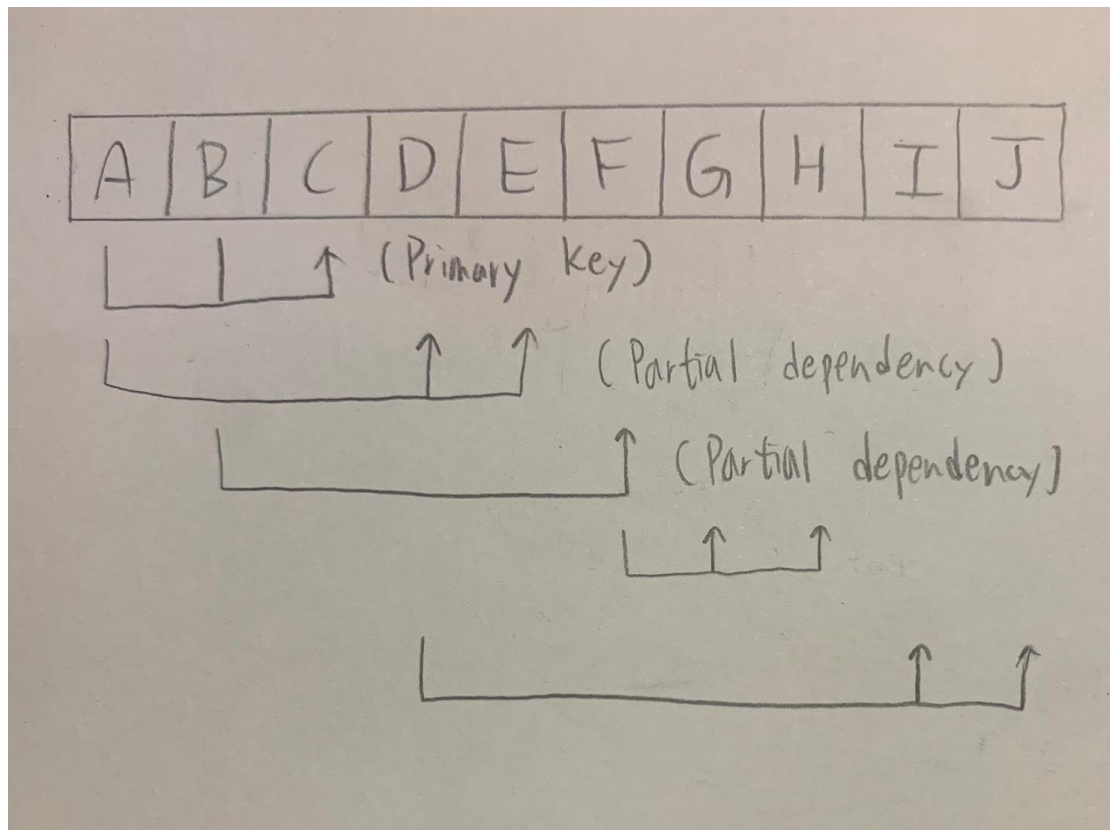 A B C D E F G H I J
(Primary key)
(Partial dependency)
(Partial dependency)